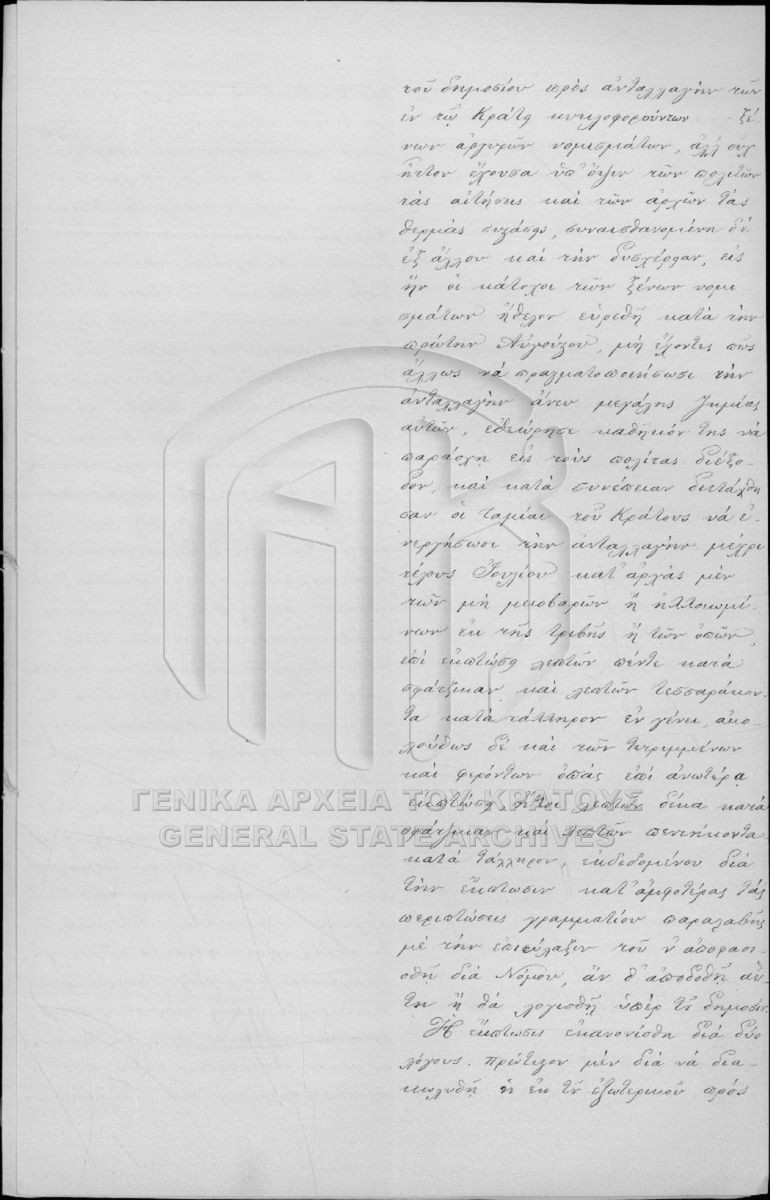 τοῦ δημοσίου πρὸς ἀνταλλαγὴν τῶν
ἐν τῷ Κράτει κυκλοφορούντων ξέ-
νων ἀργυρῶν νομισμάτων, ἀλλ' οὐχ
ἧττον ἔχουσα ὑπ' ὄψιν τῶν πολιτῶν
τὰς αἰτήσεις καὶ τῶν ἀρχῶν τὰς
θερμὰς συστάσεις, συναισθανομένη δὲ
ἐξ ἄλλου καὶ τὴν δυσχέρειαν, εἰς
ἣν οἱ κάτοχοι τῶν ξένων νομι
σμάτων ἤθελον εὑρεθῆ κατὰ τὴν
πρώτην Αὐγούστου, μὴ ἔχοντες πῶς
ἄλλως νὰ πραγματοποιήσωσι τὴν
ἀνταλλαγὴν ἄνευ μεγάλης ζημίας
αὐτῶν, ἐθεώρησε καθῆκόν της νὰ
παράσχῃ εἰς τοὺς πολίτας διέξο-
δον, καὶ κατὰ συνέπειαν διετάχθη
σαν οἱ ταμίαι τοῦ Κράτους νὰ ἐ-
νεργήσωσι τὴν ἀνταλλαγὴν μέχρι
τέλους Ἰουλίου κατ' ἀρχὰς μὲν
τῶν μὴ μειοβαρῶν ἢ ἠλλοιωμέ-
νων ἐκ τῆς τριβῆς ἢ τῶν ὀπῶν,
ἐπὶ ἐκπτώσει λεπτῶν πέντε κατὰ
σφάτζικαν καὶ λεπτῶν τεσσαράκον-
τα κατὰ τάλληρον ἐν γένει, ἀκο-
λούθως δὲ καὶ τῶν τετριμμένων
καὶ φερόντων ὀπὰς ἐπὶ ἀνωτέρᾳ
ἐκπτώσει, ἤτοι λεπτῶν δέκα κατὰ
σφάτζικαν καὶ λεπτῶν πεντήκοντα
κατὰ τάλληρον, ἐκδεδομένου διὰ
τὴν ἔκπτωσιν κατ' ἀμφοτέρας τὰς
περιπτώσεις γραμματίου παραλαβῆς
μὲ τὴν ἐπιφύλαξιν τοῦ ν' ἀποφασι-
σθῇ διὰ Νόμου, ἂν θ' ἀποδοθῇ αὕ
τη ἢ θὰ λογισθῇ ὑπὲρ τοῦ δημοσίου.
Ἡ ἔκπτωσις ἐκανονίσθη διὰ δύο
λόγους. πρώτιστον μὲν διὰ νὰ δια-
κωλυθῇ ἡ ἐκ τοῦ ἐξωτερικοῦ πρὸς
ΓΕΝΙΚΑ ΑΡΧΕΙΑ ΤΟΥ ΚΡΑΤΟΥΣ
GENERAL STATE ARCHIVES